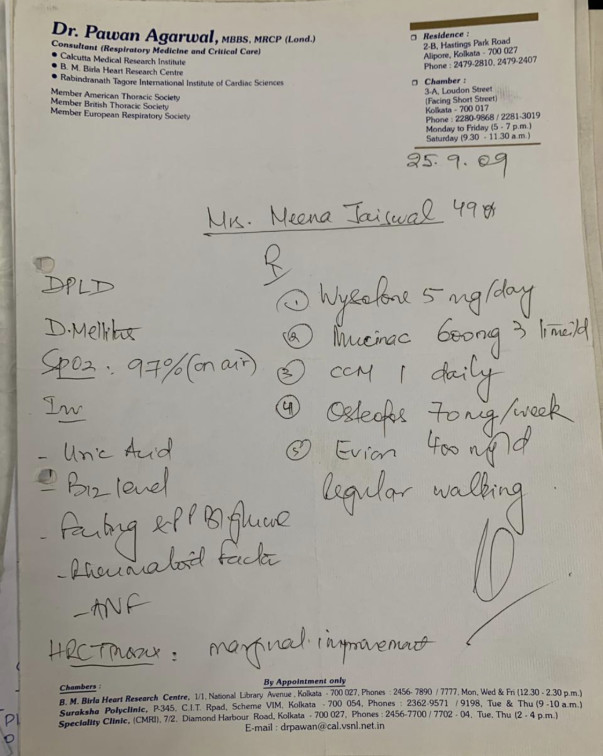 Dr. Pawan Agarwal, MBBS, MRCP (Lond.)
Consultant (Respiratory Medicine and Critical Care)
• Calcutta Medical Research Institute
• B. M. Birla Heart Research Centre
• Rabindranath Tagore International Institute of Cardiac Sciences
Member American Thoracic Society
Member British Thoracic Society
Member European Respiratory Society
Residence :
2-B, Hastings Park Road
Alipore, Kolkata - 700 027
Phone : 2479-2810, 2479-2407
Chamber :
3-A, Loudon Street
(Facing Short Street)
Kolkata - 700 017
Phone : 2280-9868 / 2281-3019
Monday to Friday (5 - 7 p.m.)
Saturday (9.30 - 11.30 a.m.)
25.9.09
Mrs. Meena Jaiswal 49
DPLD
D.Mellitus
SpO2 : 97% (on air)
Inv
- Uric Acid
- B12 level
- Fasting & PP Bl glucose
- Rheumatoid factor
- ANF
HRCT Thorax : marginal improvement
R
① Wysolone 5 mg/day
② Mucinac 600mg 3 times/d
③ CCM 1 daily
④ Osteofos 70 mg/week
⑤ Evion 400 mg/d
Regular walking
By Appointment only
Chambers :
B. M. Birla Heart Research Centre, 1/1, National Library Avenue, Kolkata - 700 027, Phones : 2456- 7890 / 7777, Mon, Wed & Fri (12.30 - 2.30 p.m.)
Suraksha Polyclinic, P-345, C.I.T. Rpad, Scheme VIM, Kolkata - 700 054, Phones : 2362-9571 / 9198, Tue & Thu (9 -10 a.m.)
Speciality Clinic, (CMRI), 7/2, Diamond Harbour Road, Kolkata - 700 027, Phones : 2456-7700 / 7702 - 04, Tue, Thu (2 - 4 p.m.)
E-mail : drpawan@cal.vsnl.net.in